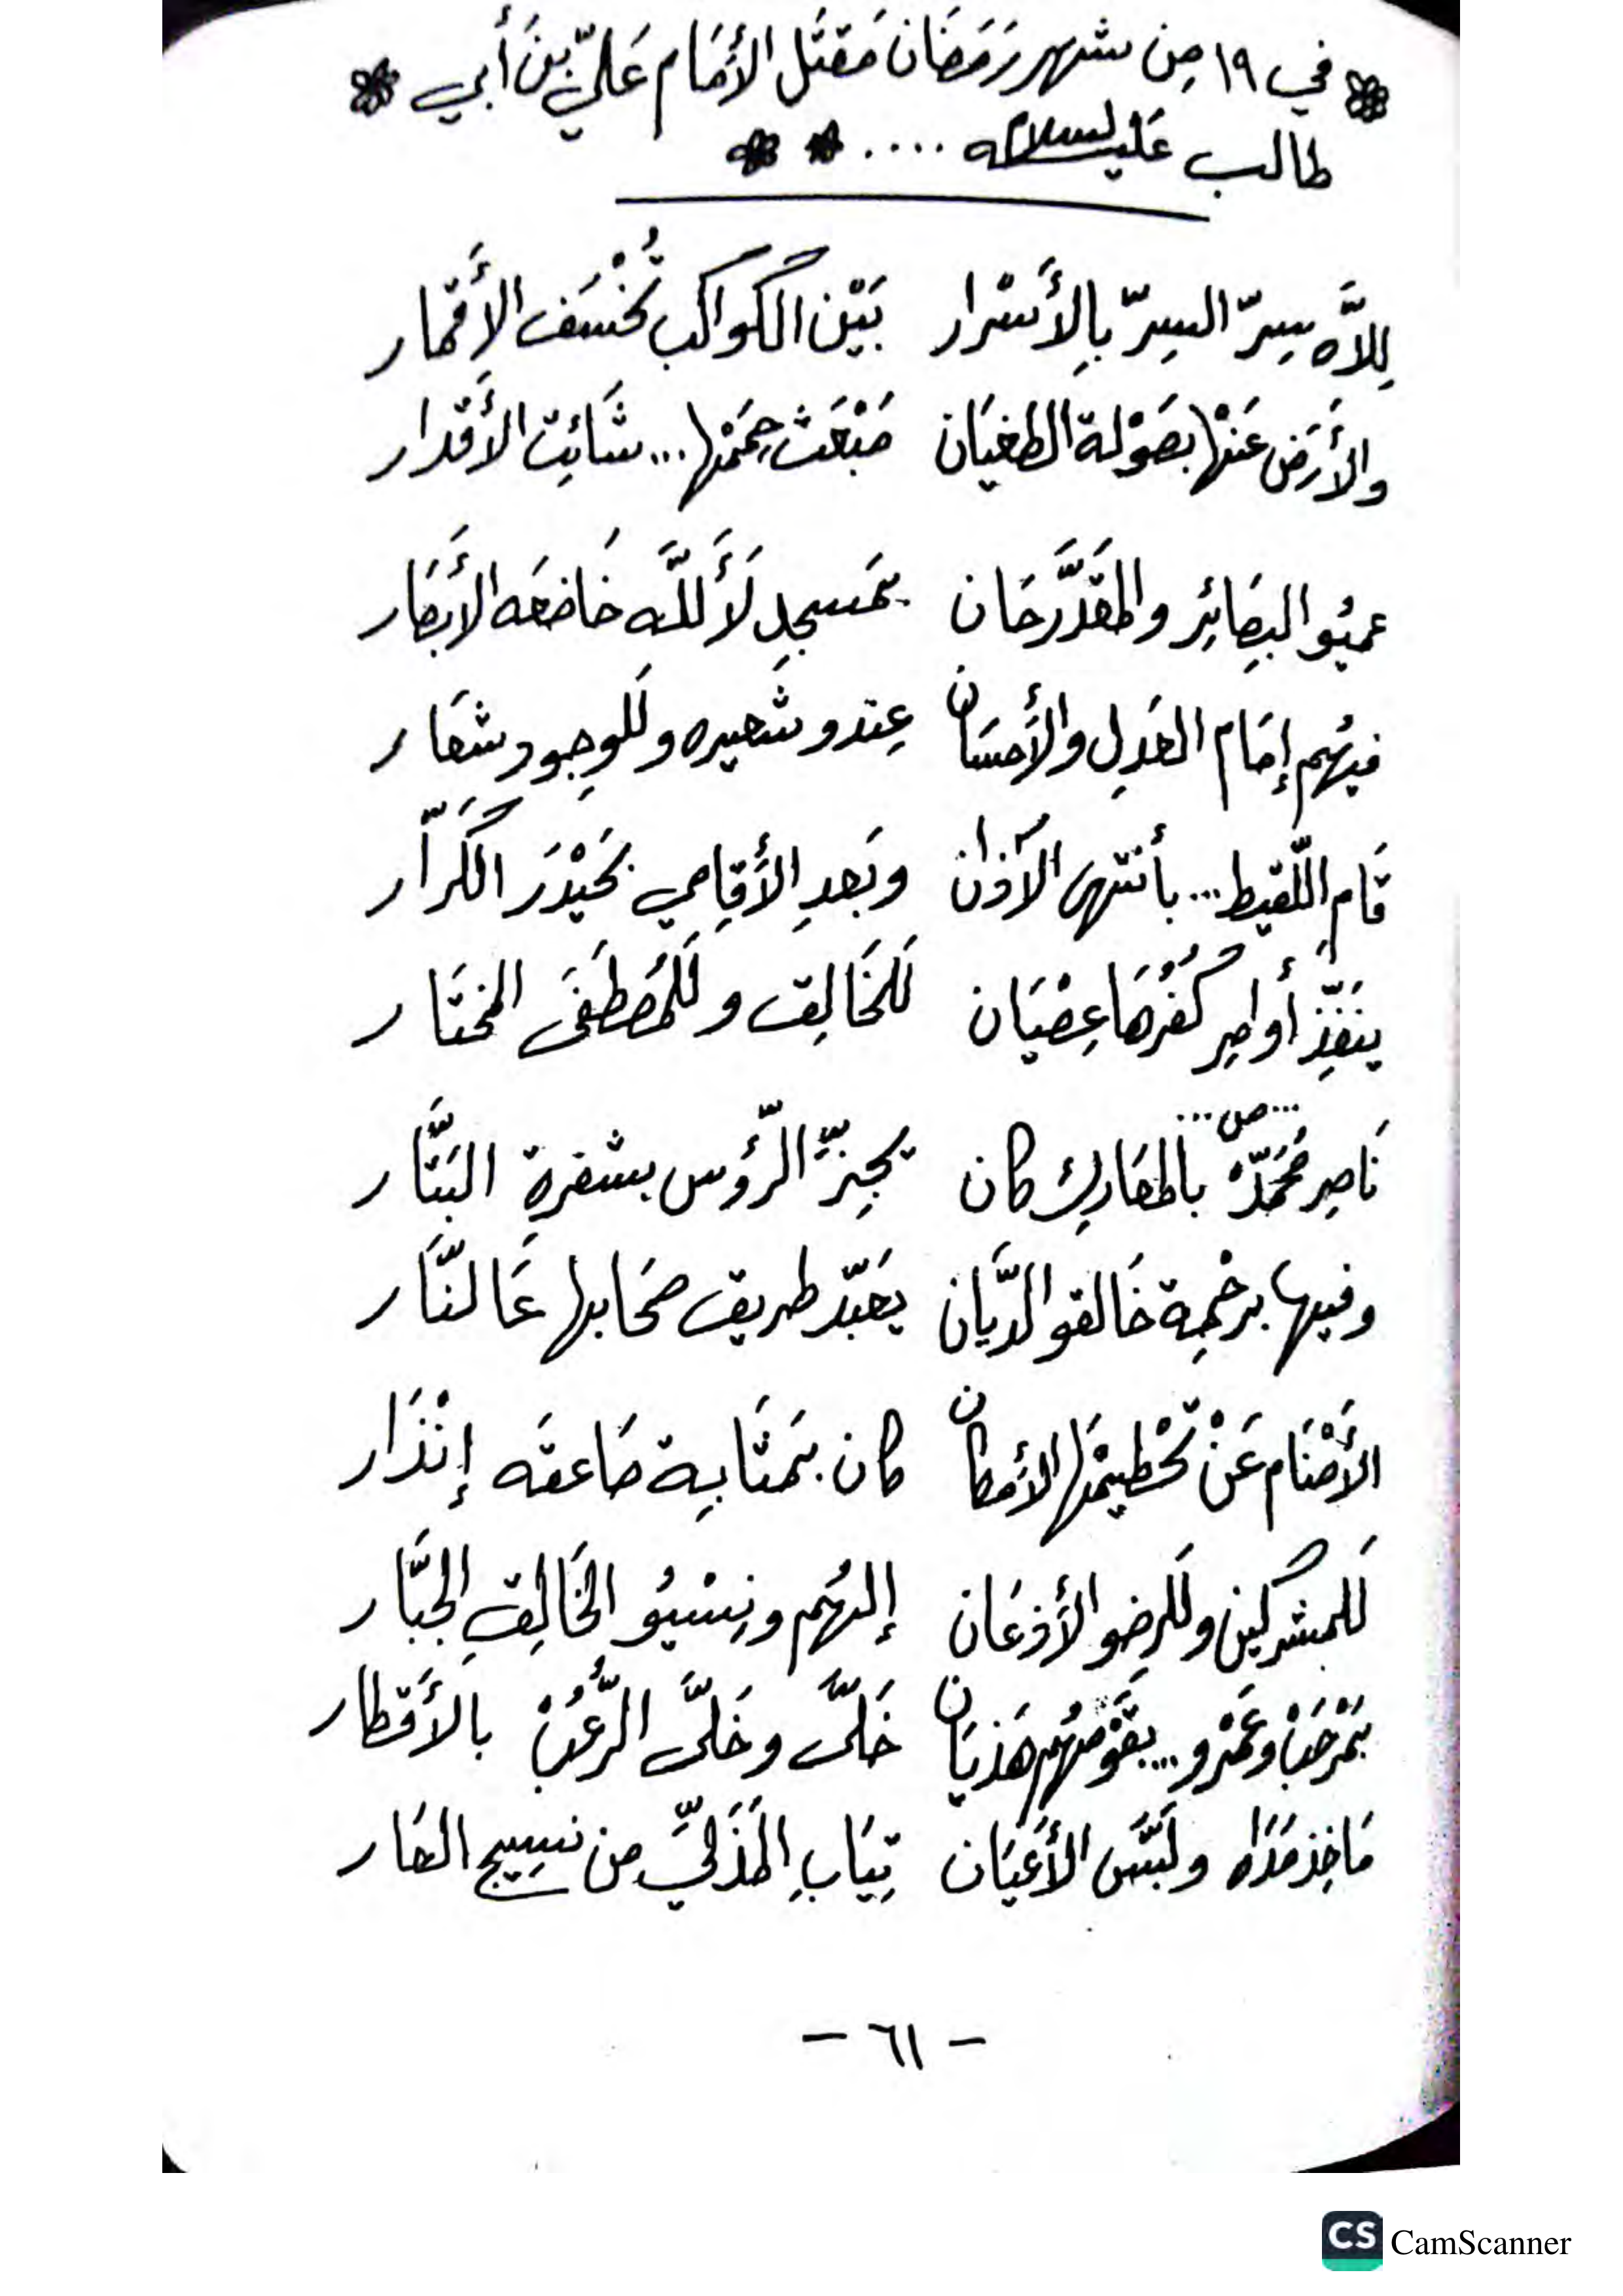 في ١٩ مِن شهر رَمَضَان مَقتَل الأمَام عَليّ بنَ أبي
طالب عَليه السلام ....
لِلاَّه سِرّ السِرّ بِالأَسْرار بَيْن الكَواكب تُخْسَف الأَقمار
والأَرَض عَنْها بصَوْلة الطغيَان مَبْعَث حِمَمْها ... شَائِت الأَقدار
عميُو البصَائِر والمقَدَّر حَان بمَسجِدِ لَأَللَّه خَاضعَه الأَبصَار
فيهُم إمَام العَدلِ والأَحسَان عِندو شَعيره وللوجِود شعَار
قَام اللّقيط ... بأَنتهى الآذان وبَعدِ الأَقامي بحَيْدَر الكَرّار
ينَفّذِ أوامِر كُفُرْهَا عِصْيَان لَلخَالِق ولَلمُصْطَفَى المختَار
... ص ...
نَاصِر مُحَمَدّ بالمعَارِك كان يجِزّ الرّؤس بشفرةِ البَتَّار
وفيها برحْمِة خَالقو الدَّيان يعَبّد طريق صحَابها عَالنَّار
الأَصْنَام عَنْ تحْطيمْها الأَمكان كان بمَثَابِة صَاعقَه إنْذَار
لَلمشركين ولَلرِضو الأَذعَان إلهُهم ونِسْيُو الخَالِق الجبَّار
بمْرحَبْ وعَمْرو ... بقَوْمهُم هَذيَان خَلَّى وخَلَّى الرُّعُبْ بالأَقطار
مَاخِذ مَدَاه ولَبَّس الأَعيَان تِيَابِ المَذَلِّي مِن نسِيج العَار
- ٦١ -
CS CamScanner